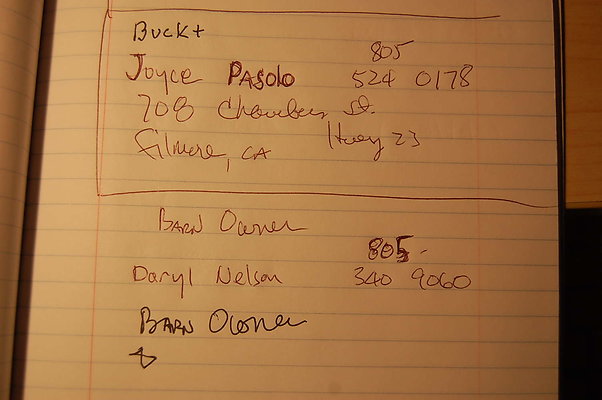 Buck +
805
Joyce Pasolo 524 0178
708 Chambers St.
Filmore, CA Hwy 23
Barn Owner
805
Daryl Nelson 340 9060
Barn Owner